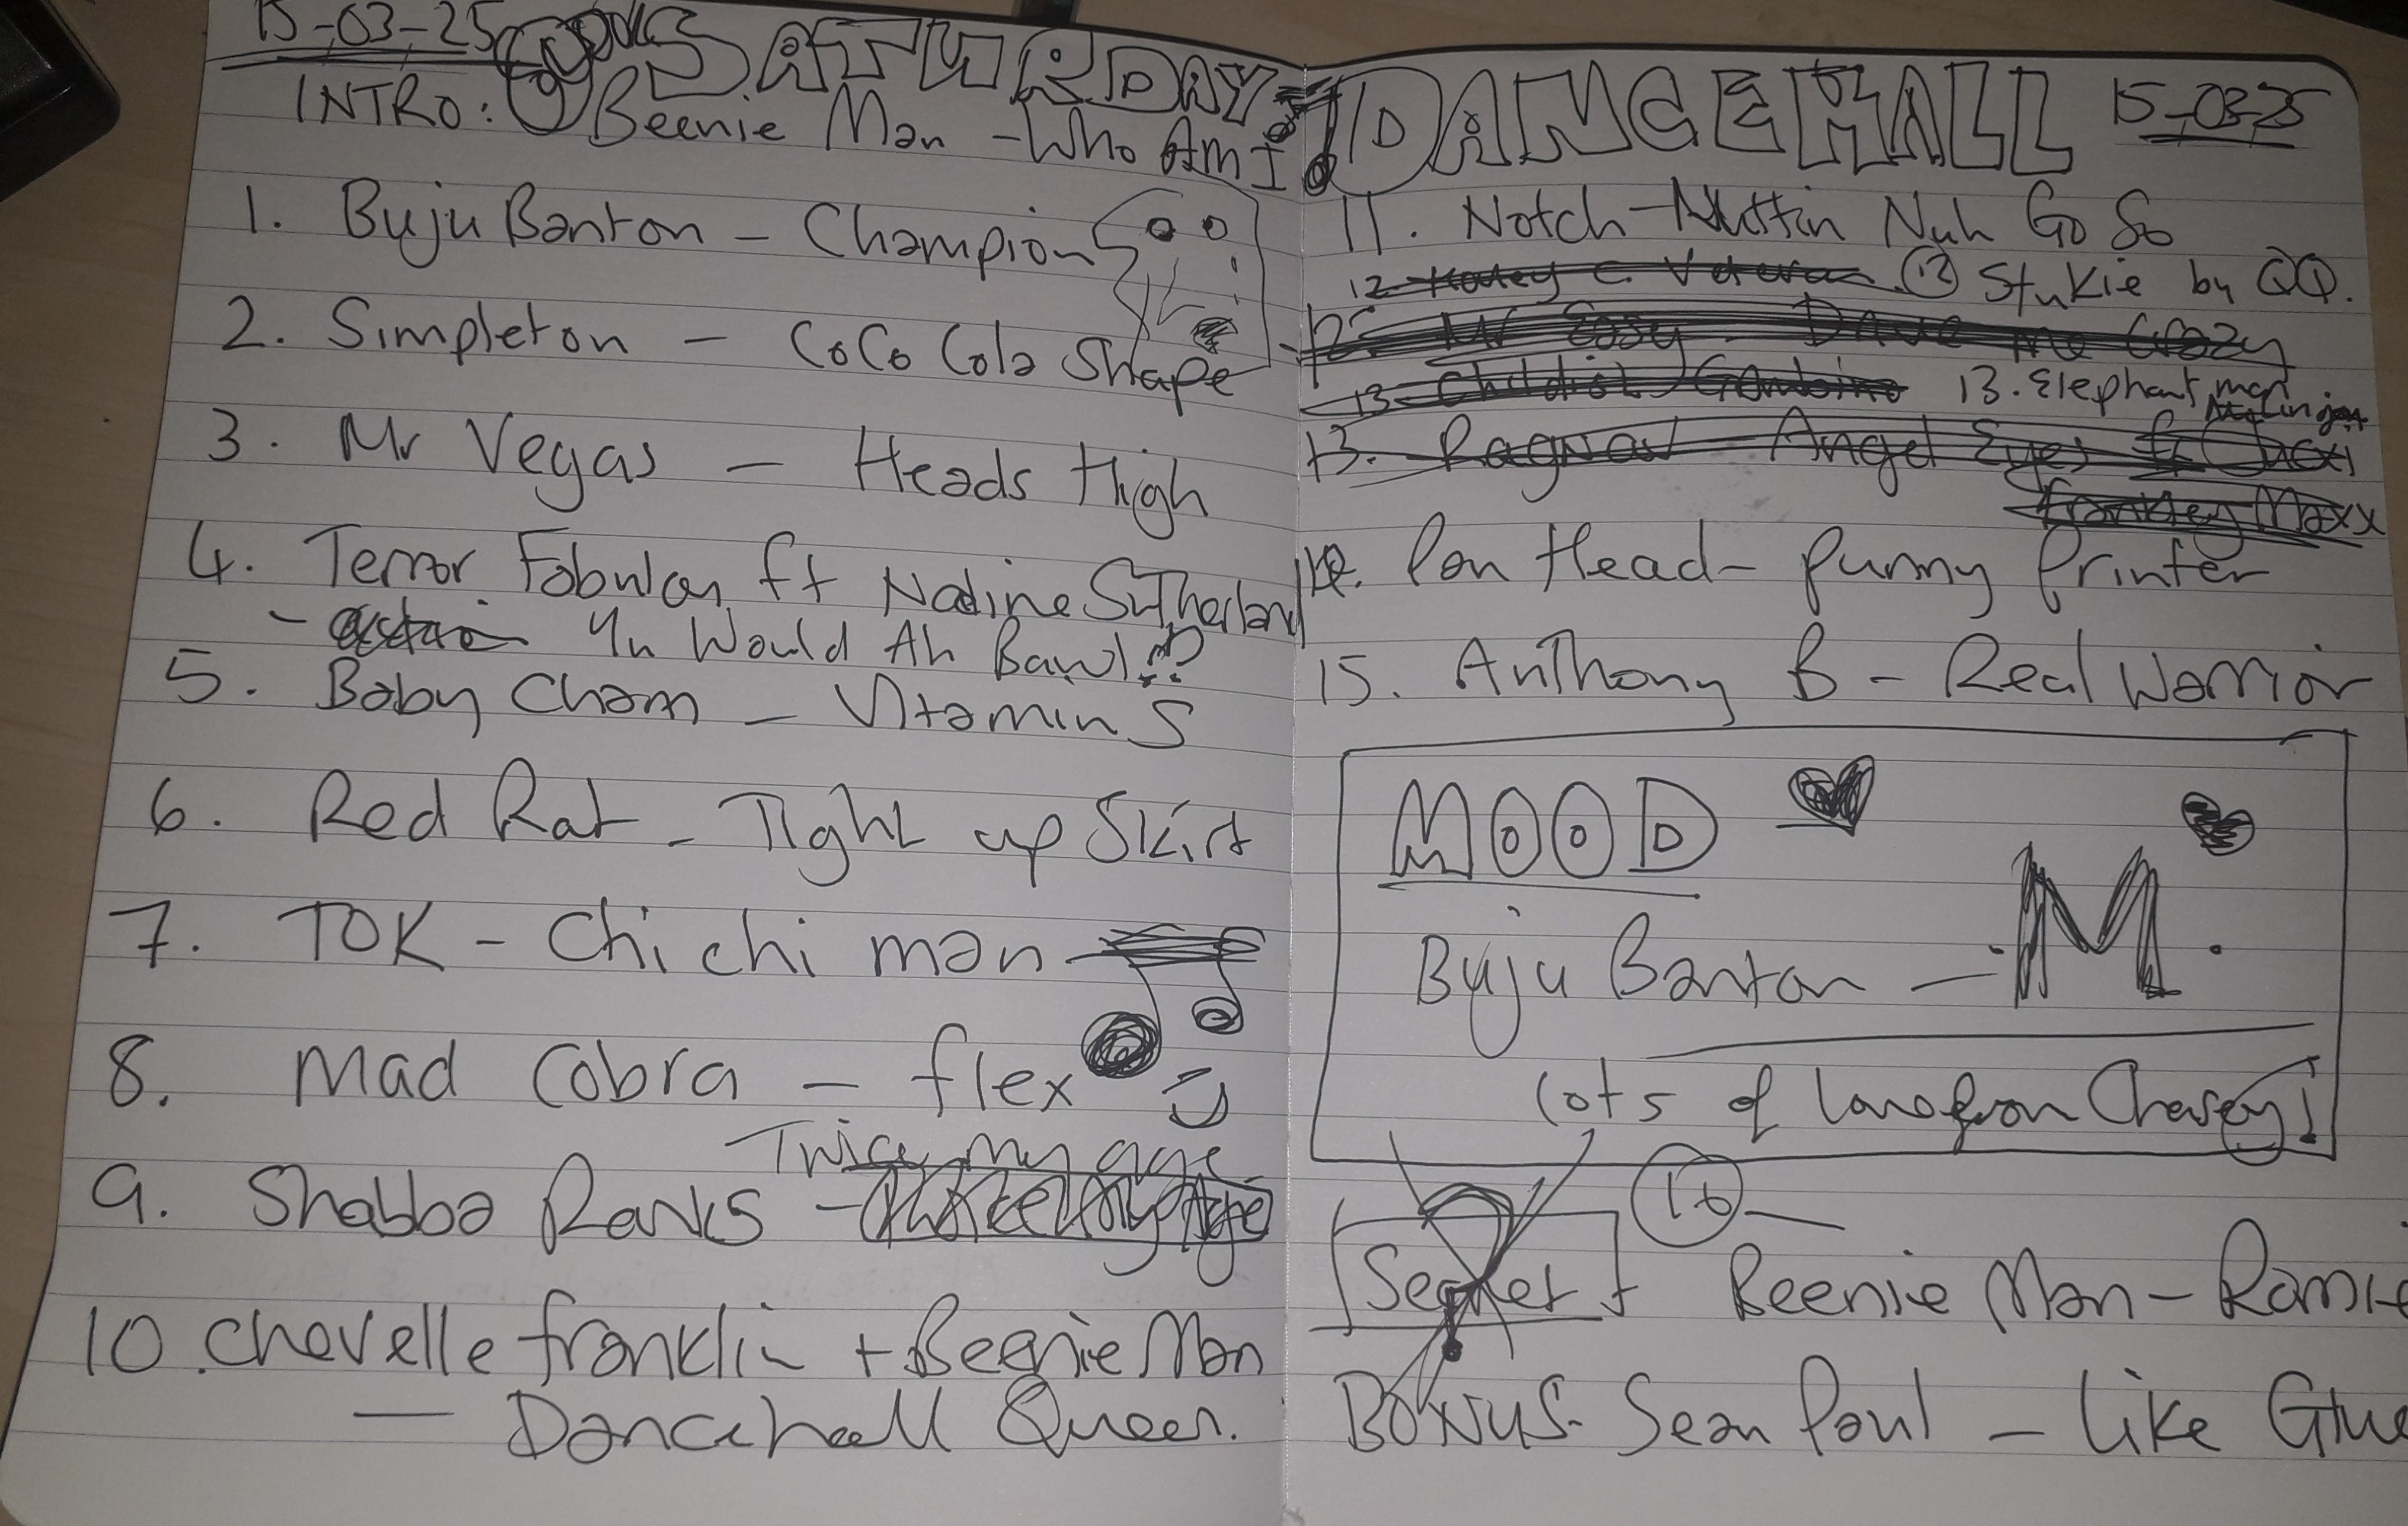 15-03-25 SATURDAY
INTRO: Beenie Man - Who Am I
1. Buju Banton - Champion
2. Simpleton - CoCo Cola Shape
3. Mr Vegas - Heads High
4. Terror Fabulan ft Nadine Sutherland
- Yu Would Ah Bawl!?
5. Baby Cham - Vitamin S
6. Red Rat - Tight up Skirt
7. TOK - Chi chi man
8. Mad Cobra - flex
Twice my age
9. Shabba Ranks -
10. Chevelle franklin + Beenie Man
- Dancehall Queen.
DANCEHALL 15-03-25
11. Notch - Nuttin Nuh Go So
12 Stukie by QQ.
12. Mr Easy - Drive me Crazy
13. Childish Gambino 13. Elephant man
13. Ragnav - Angel Eyes
Frankey Maxx
14. Pan Head - Punny Printer
15. Anthony B - Real Warrior
MOOD
Buju Banton - M.
Lots of love from Chasey!
16
Secret Beenie Man - Romie
BONUS - Sean Paul - Like Glue